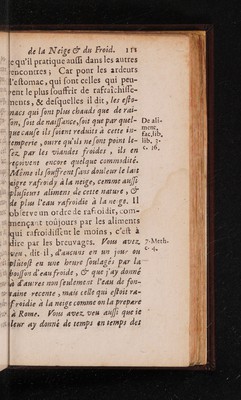 de la Neige & du Froid. 151
e qu'il pratique aussi dans les autres
encontres; Car pour les ardeurs
l'estomac, qui sont celles qui peu-
ent le plus souffrir de rafraichisse-
ments, & desquelles il dit, les esto-
macs qui sont plus chauds que de rai-
on, soit de naissance, soit que par quel-
que cause ils soient reduits à cette in-
temperie, outre qu'ils ne sont point le-
ez par les viandes froides, ils en
reçoivent encore quelque commodité.
Même ils souffrent sans douleur le lait
aigre rafroidy à la neige, comme aussi
plusieurs aliments de cette nature, &
de plus l'eau rafroidie à la neige. Il
observe un ordre de rafroidir, com-
mençant toujours par les aliments
qui rafroidissent le moins, c'est à
dire par les breuvages. Vous avez
veu, dit il, d'aucuns en un jour ou
plûtost en une heure soulagez par la
boisson d'eau froide, & que j'ay donné
à d'autres non seulement l'eau de fon-
taine recente, mais celle qui estoit ra-
froidie à la neige comme on la prepare
à Rome. Vous avez veu aussi que je
leur ay donné de temps en temps des
De ali-
ment.
fac. lib.
lib. 3.
c. 16.
7. Meth.
c. 4.